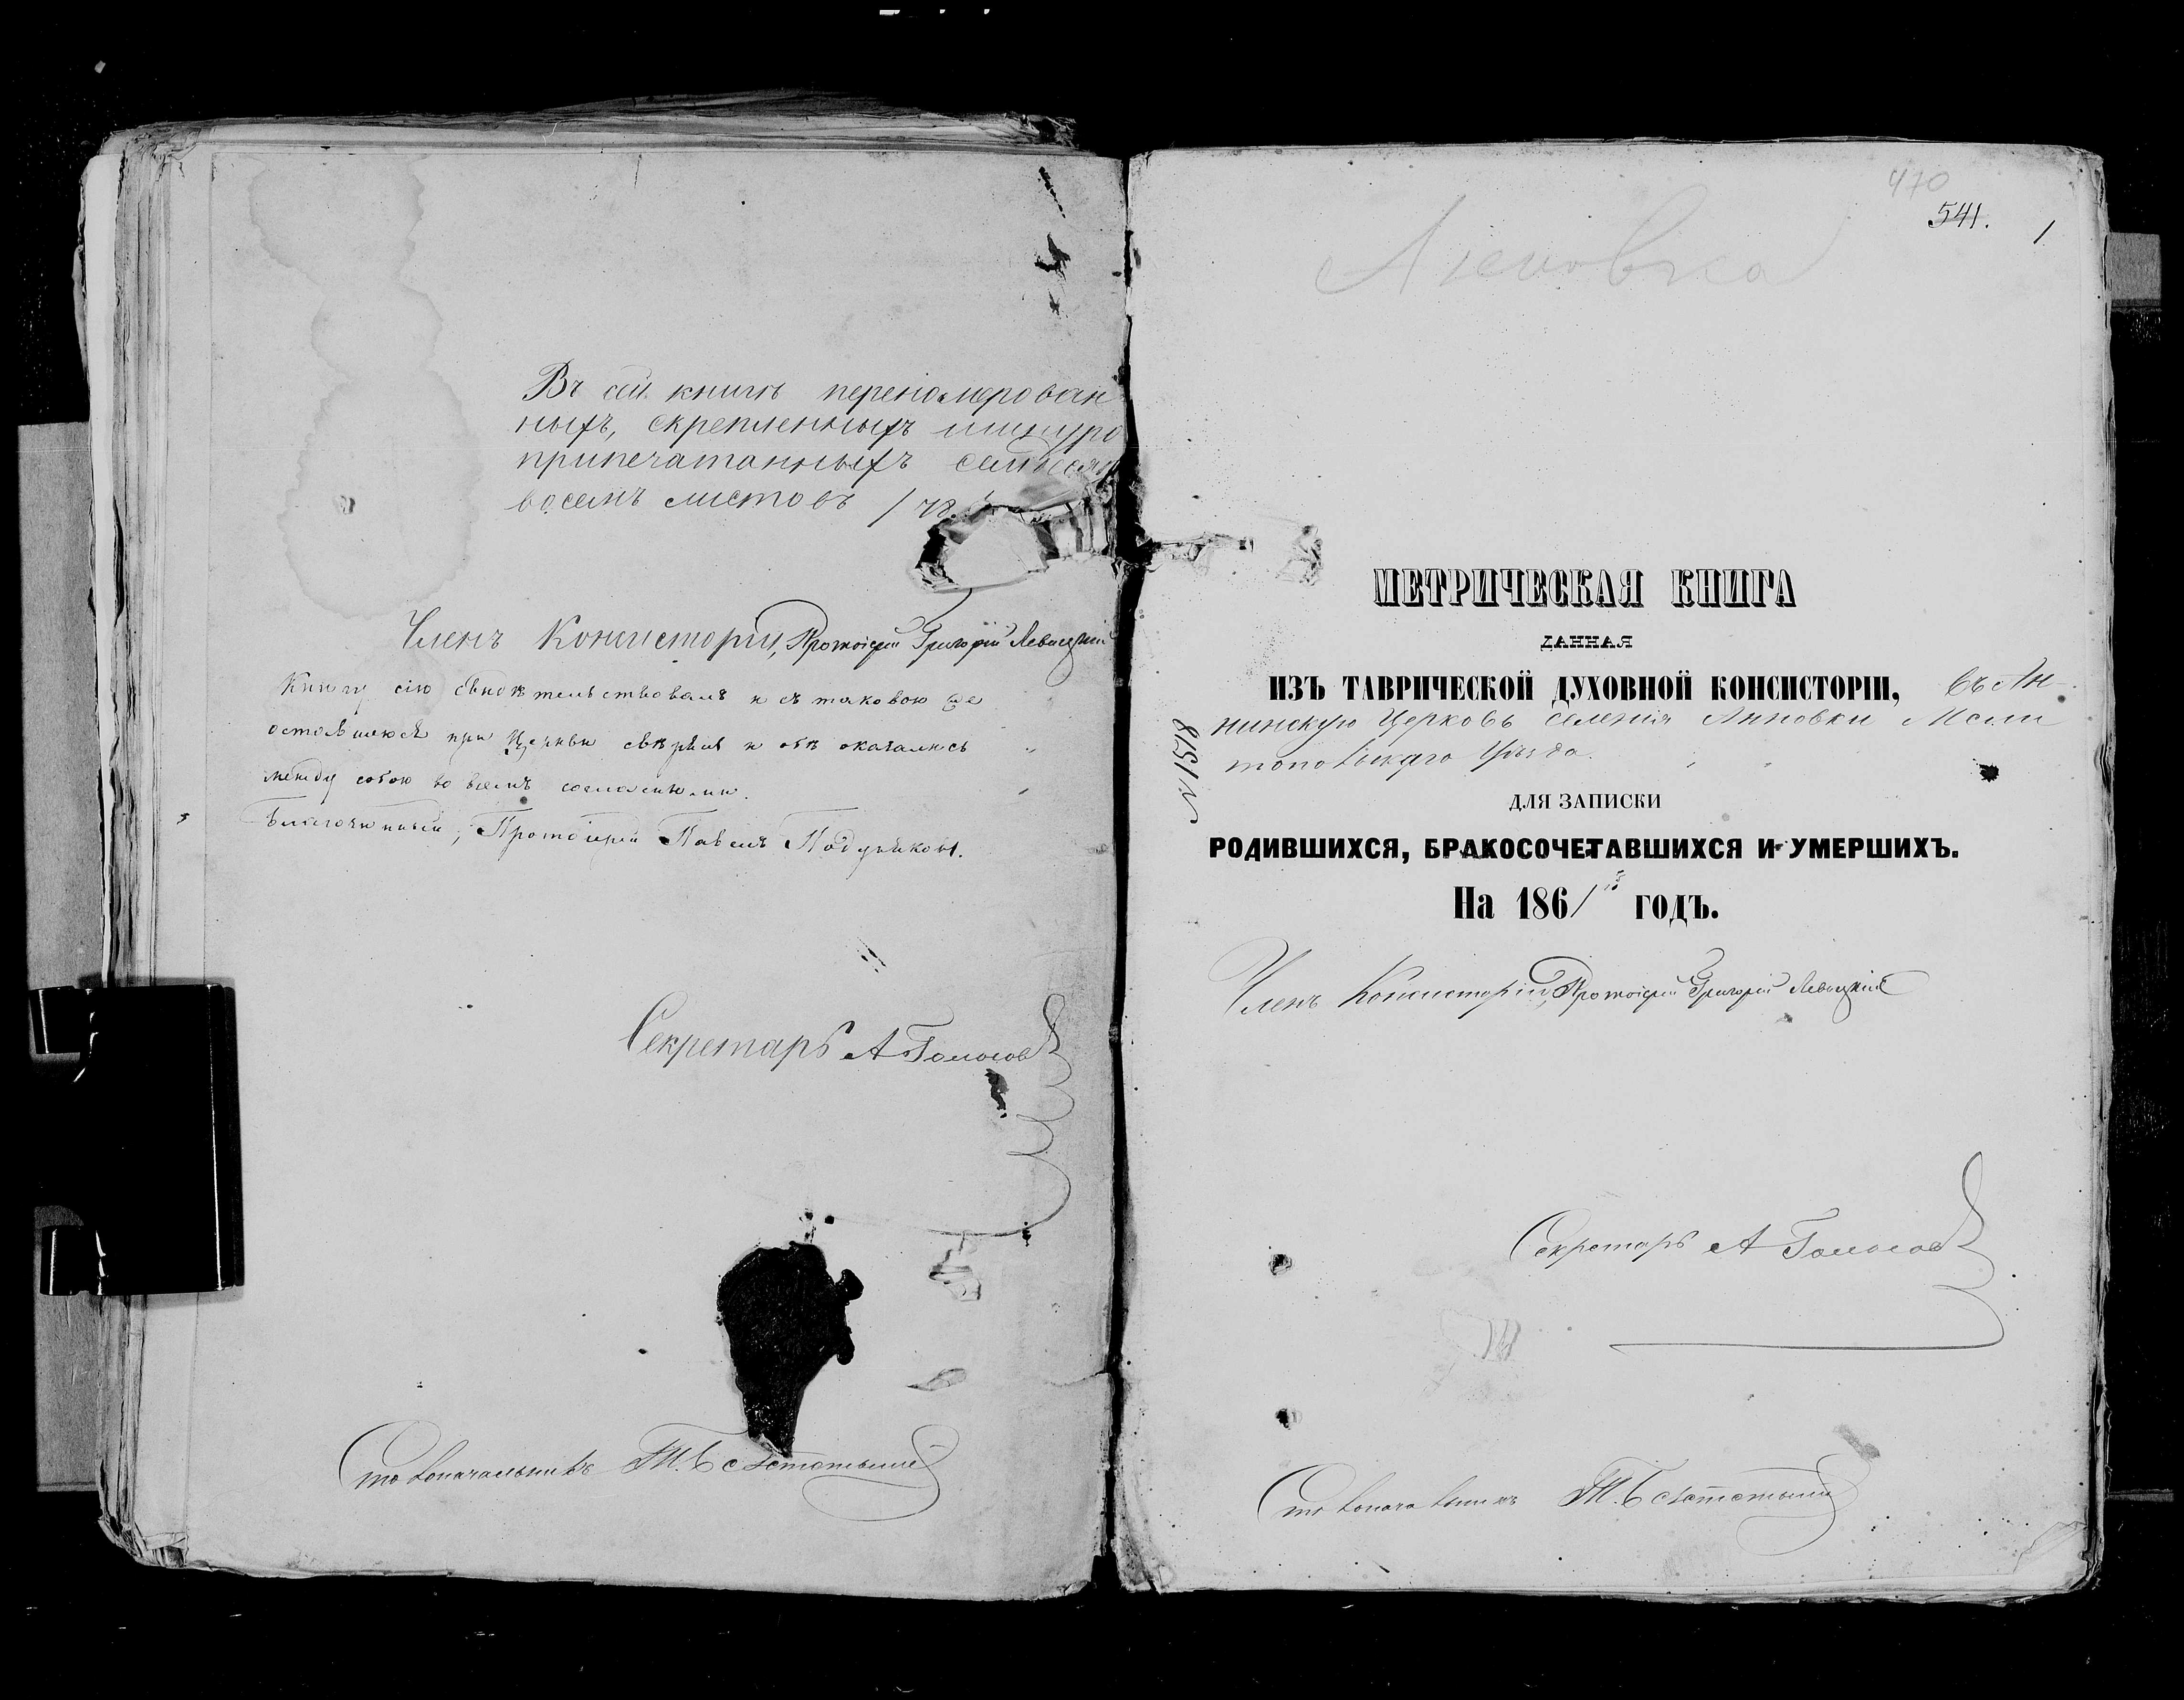 Въ сей книгѣ перенумерован
ныхъ, скрепленныхъ шнуро
припечатанныхъ семьдесятъ
восемь листовъ / 78.
Членъ Консисторіи, Протоіерей Григорій Левицкій
Книгу сію свидѣтельствовалъ и съ таковою же
оставшеюся при Церкви свѣрялъ и обѣ оказались
между собою во всемъ согласными.
Благочинный, Протоіерей Павелъ
Секретарь А Голосов
Столоначальникъ
470
541.
1
Анновка
МЕТРИЧЕСКАЯ КНИГА
ДАННАЯ
ИЗЪ ТАВРИЧЕСКОЙ ДУХОВНОЙ КОНСИСТОРІИ, въ Ан-
нинскую Церковь селенія Анновки Мели
топольскаго Уѣзда.
№ 1518
ДЛЯ ЗАПИСКИ
РОДИВШИХСЯ, БРАКОСОЧЕТАВШИХСЯ И УМЕРШИХЪ.
На 1861 ГОДЪ.
Членъ Консисторіи, Протоіерей Григорій Левицкій
Секретарь А Голосов
Столоначальникъ